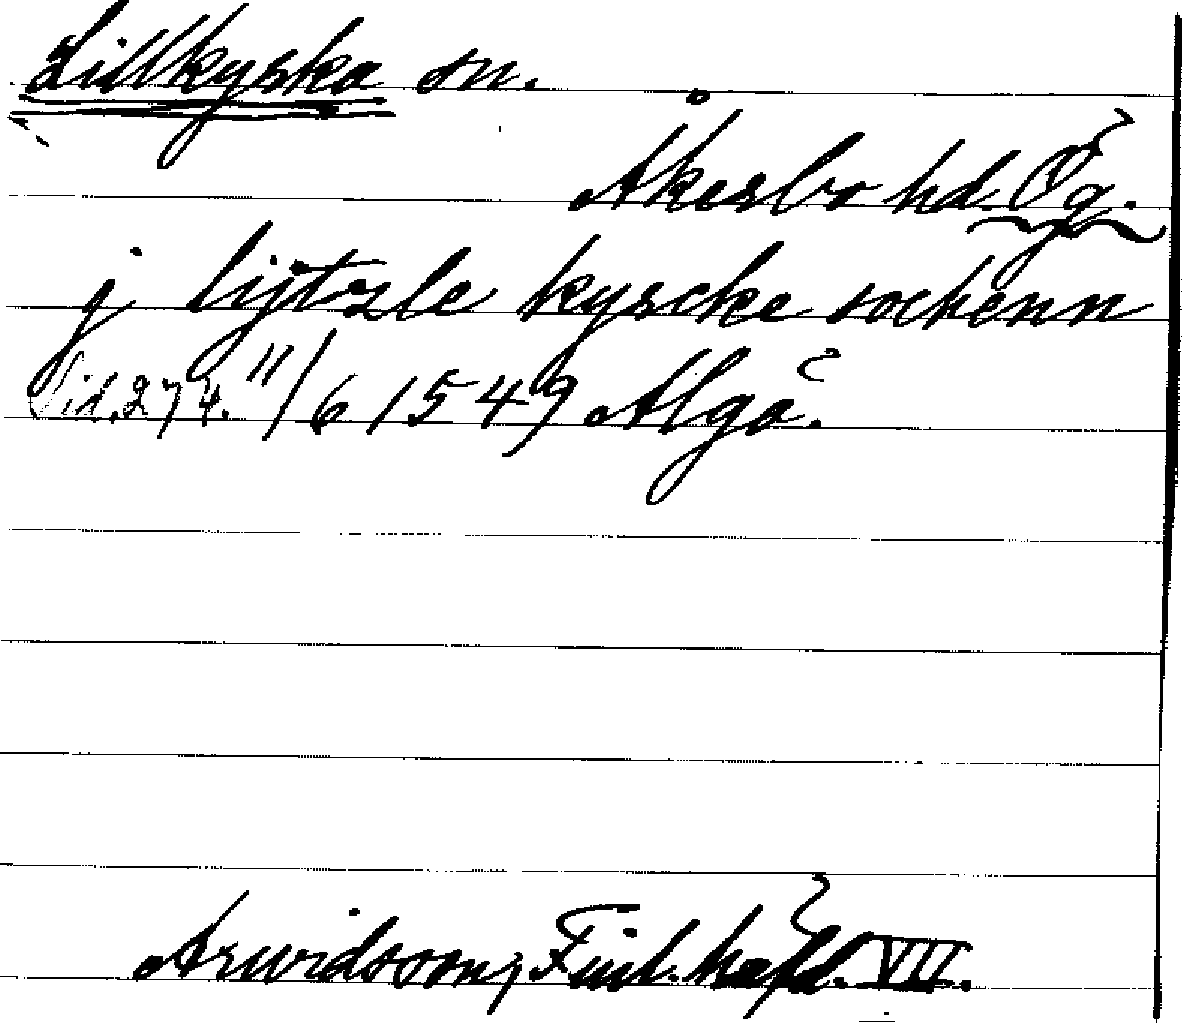 Lillkyrka sn.
Åkerbo hd. Ög.
j lijtzle kyrcke sochenn
Sid. 274. 11/6 1549 Algö.
Arwidsson, Finl. häfd. VII.